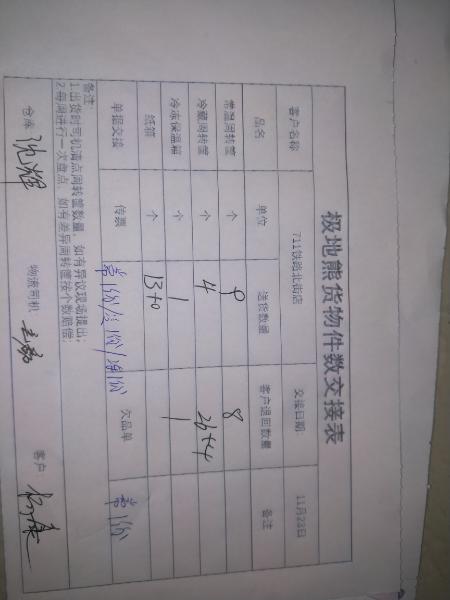 极地熊货物件数交接表
客户名称 711铁路北街店 交接日期: 11月23日
品名 单位 送货数量 客户退回数量 备注
常温周转筐 个 9 8
冷藏周转筐 个 4 26+4
冷冻保温箱 个 1 1
纸箱 个 13+0
单据交接 传票 常1份/冷1份/ 欠品单 常1份
备注:
1.出货时司机清点周转筐数量,如有异议现场提出;
2.每周进行一次盘点,如有差异周转筐按个数赔偿;
仓库: 沈辉 物流司机: 客户: